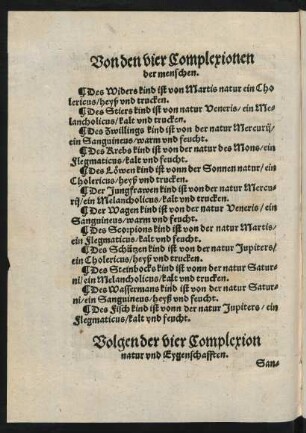 Von den vier Complexionen
der menschen.
¶Des Widers kind ist von Martis natur ein Cho
lericus/heyß vnd trucken.
¶Des Stiers kind ist von natur Veneris/ein Me-
lancholicus/kalt vnd trucken.
¶Des Zwillings kind ist von der natur Mercurij/
ein Sanguineus/warm vnd feucht.
¶Des Krebs kind ist von der natur des Mons/ein
Flegmaticus/kalt vnd feucht.
¶Des Löwen kind ist vonn der Sonnen natur/ein
Cholericus/heyß vnd trucken.
¶Der Jungfrawen kind ist von der natur Mercu
rij/ein Melancholicus/kalt vnd trucken.
¶Der Wagen kind ist von der natur Veneris/ein
Sanguineus/warm vnd feucht.
¶Des Scorpions kind ist von der natur Martis/
ein Flegmaticus/kalt vnd feucht.
¶Des Schützen kind ist vonn der natur Jupiters/
ein Cholericus/heyß vnd trucken.
¶Des Steinbocks kind ist vonn der natur Satur
ni/ein Melancholicus/kalt vnd trucken.
¶Des Wassermans kind ist von der natur Satur
ni/ein Sanguineus/heyß vnd feucht.
¶Des Fisch kind ist vonn der natur Jupiters/ein
Flegmaticus/kalt vnd feucht.
Volgen der vier Complexion
natur vnd Eygenschafften.
San-